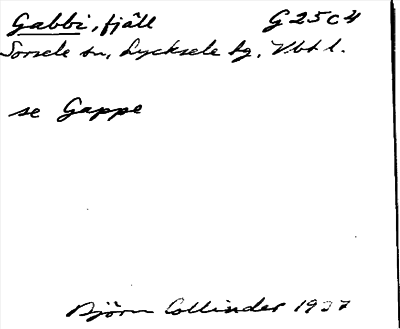 Gabbi, fjäll G25c4
Sorsele sn, Lycksele lg, Vbtl.
se Gappe
Björn Collinder 1937